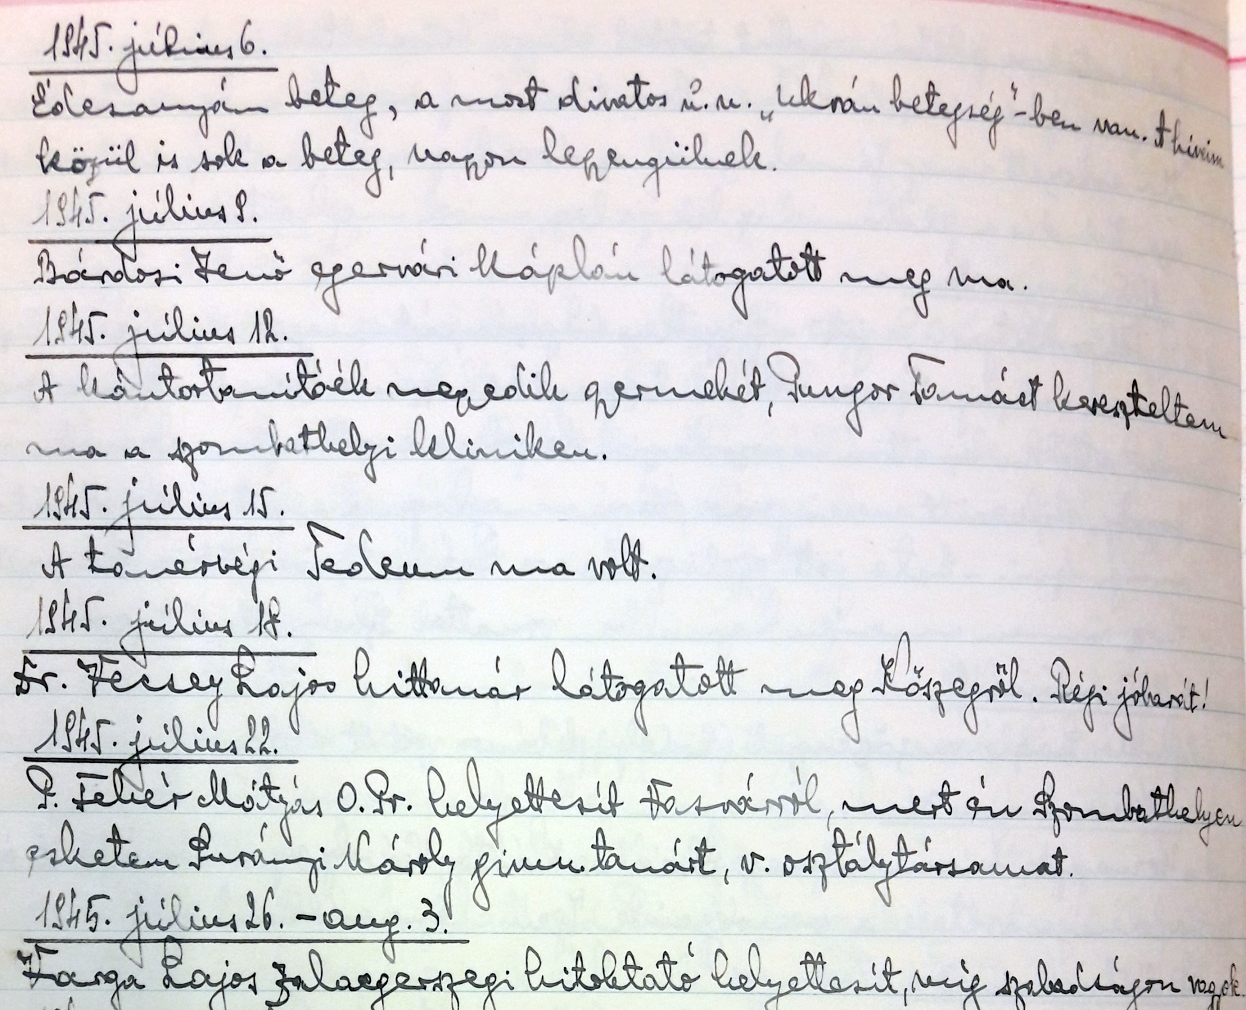 1945. július 6.
Édesanyám beteg, a most divatos ú.n. „ukrán betegség"-ben van. A híveim
közül is sok a beteg, nagyon legyengülnek.
1945. július 9.
Bárdosi Jenő egervári káplán látogatott meg ma.
1945. július 12.
A kántortanítóék negyedik gyermekét, Pungor Tamást kereszteltem
ma a szombathelyi kliniken.
1945. július 15.
A tanévvégi Tedeum ma volt.
1945. július 18.
Dr. Vecsey Lajos hittanár látogatott meg Kőszegről. Régi jóbarát!
1945. július 22.
P. Fehér Mátyás O.Pr. helyettesít Vasvárról, mert én Szombathelyen
esketem Surányi Károly gimn. tanárt, v. osztálytársamat.
1945. július 26. - aug. 3.
Varga Lajos zalaegerszegi hitoktató helyettesít, míg szabadságon vagyok.